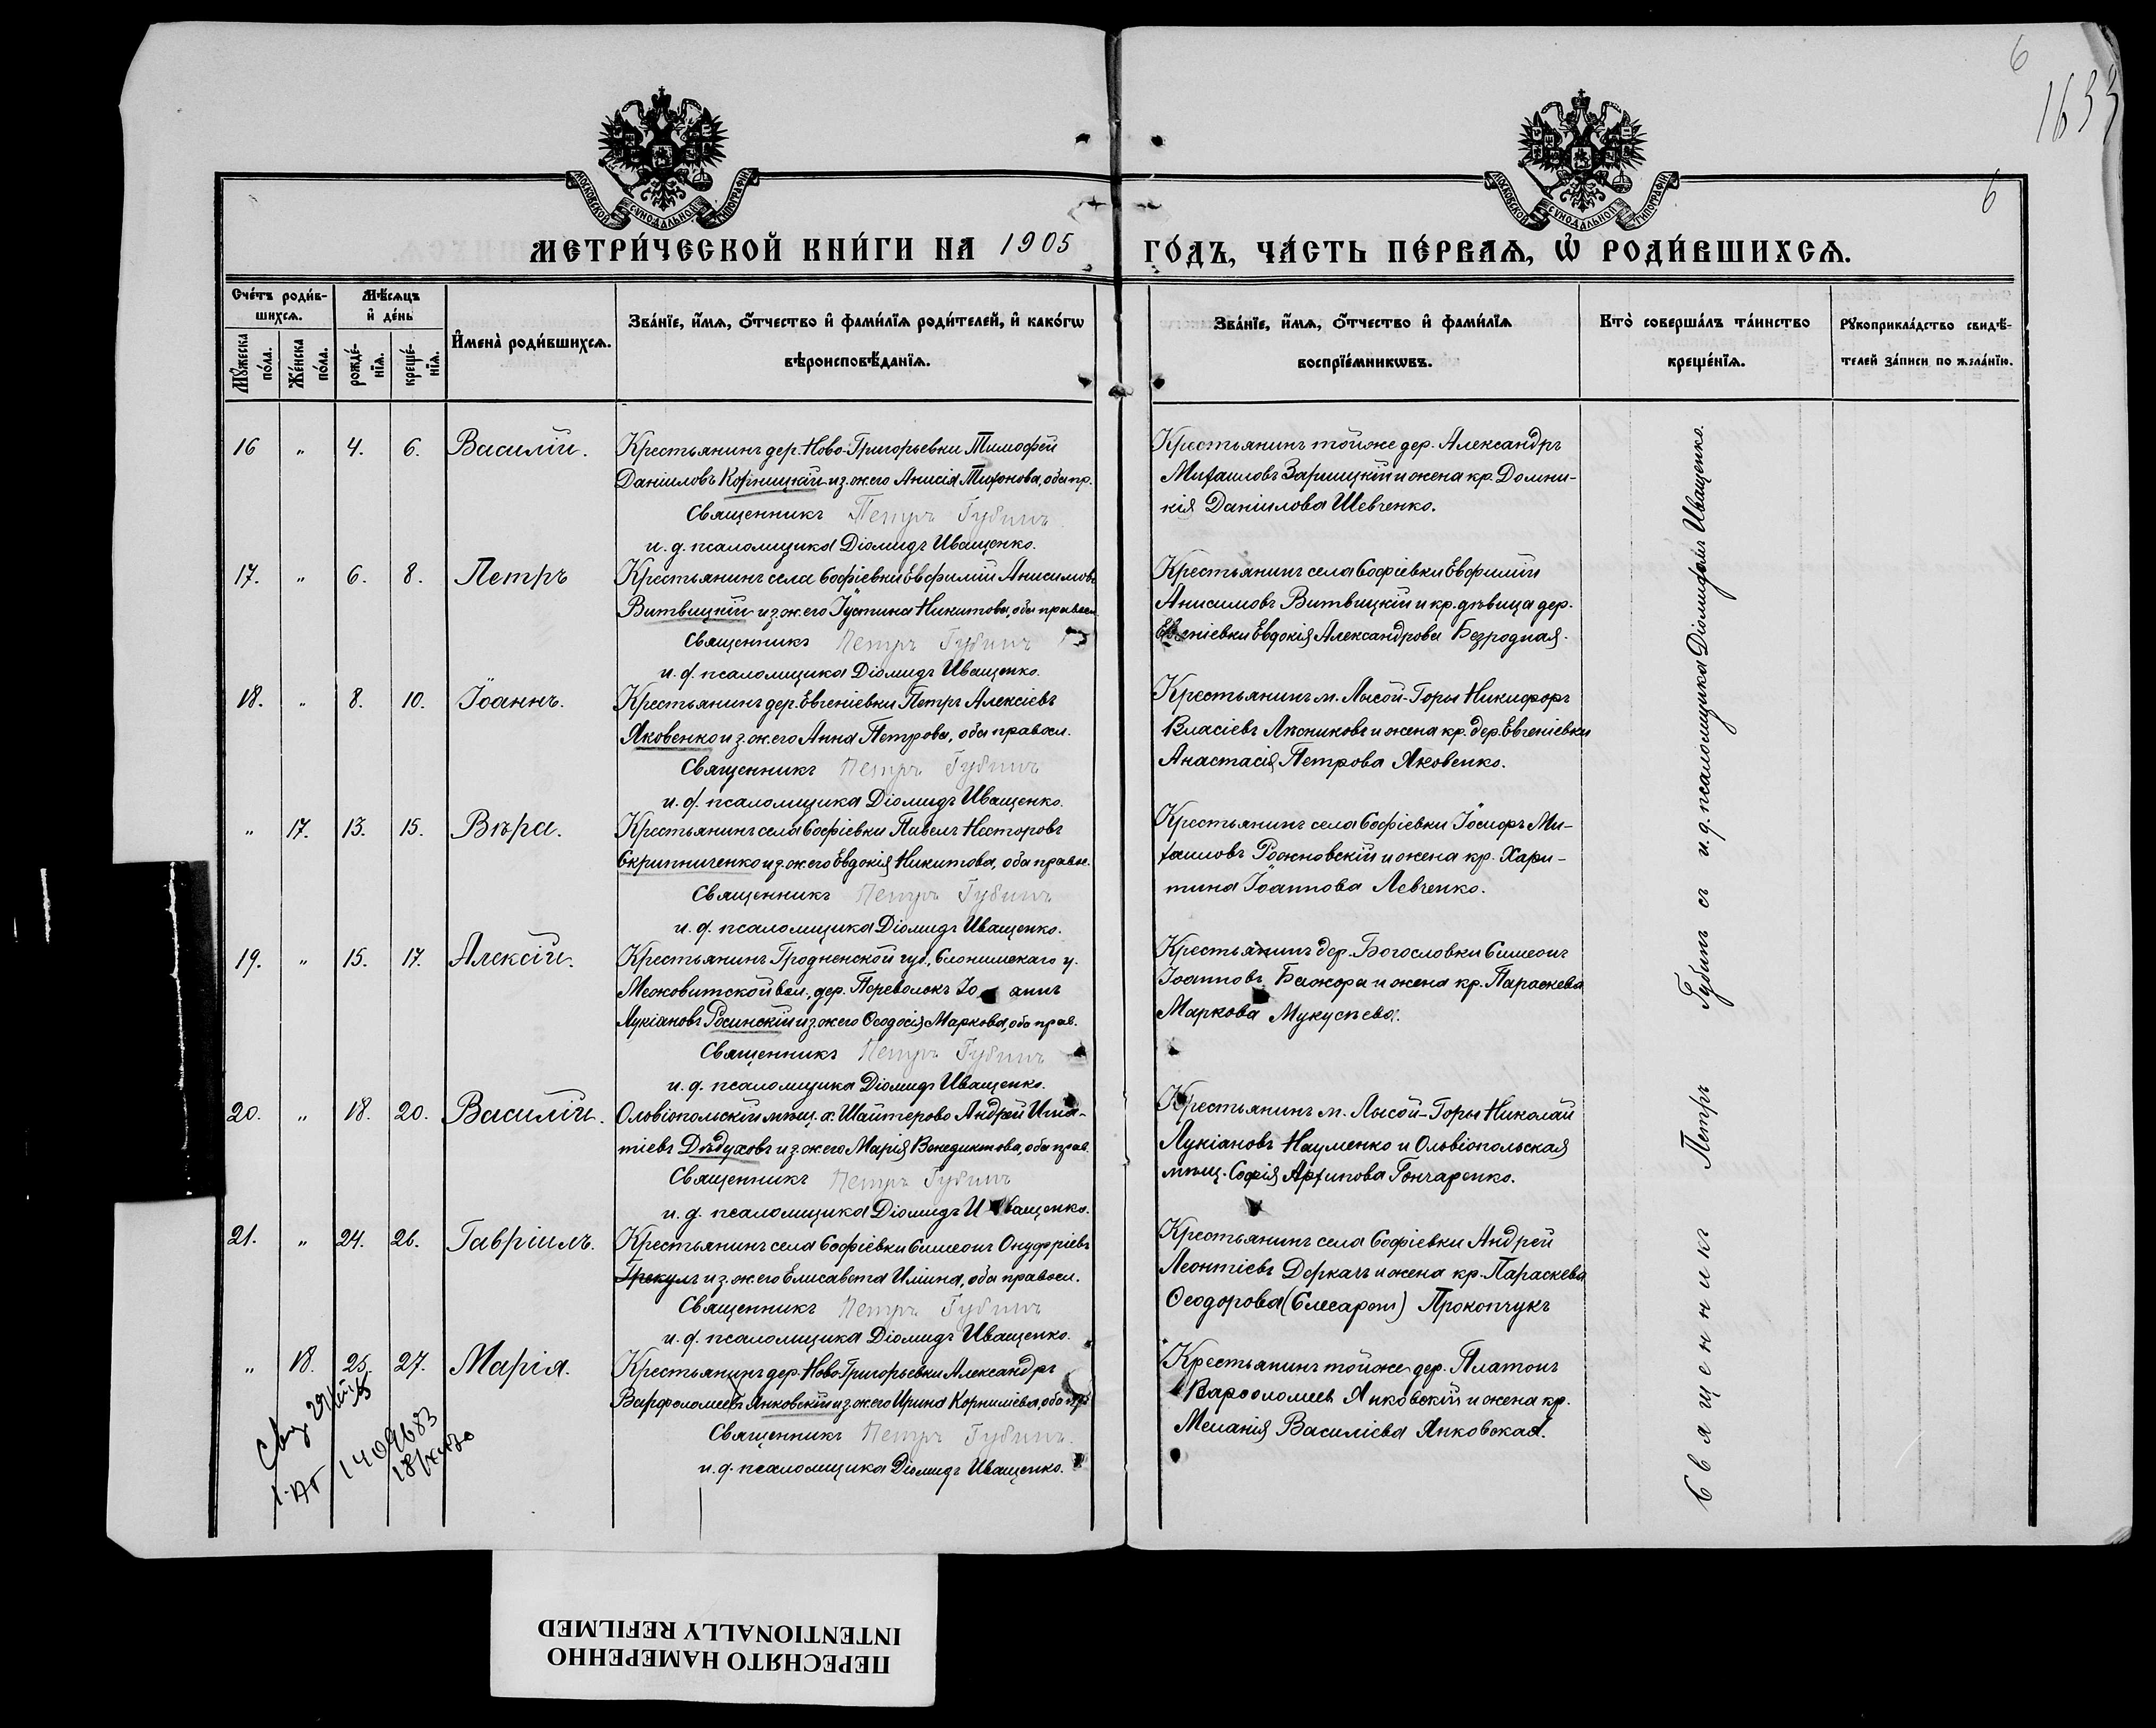 6
1633
6
МОСКОВСКОЙ СУНОДАЛЬНОЙ ТИПОГРАФІИ
МОСКОВСКОЙ СУНОДАЛЬНОЙ ТИПОГРАФІИ
МЕТРИ́ЧЕСКОЙ КНИ́ГИ НА 1905 ГО́ДЪ, ЧА́СТЬ ПЕ́РВАѦ, Ѡ҆ РОДИ́ВШИХСѦ.
Сче́тъ роди́в-
шихсѧ.
Мꙋ́жеска по́ла.
Же́нска по́ла.
Мѣ́сѧцъ
и҆ де́нь
рожде́-
нїѧ.
креще́-
нїѧ.
И҆мена̀ роди́вшихсѧ.
Зва́нїе, и҆́мѧ, ѻ҆́тчество и҆ фами́лїѧ роди́телей, и҆ како́гѡ
вѣроисповѣ́данїѧ.
Зва́нїе, и҆́мѧ, ѻ҆́тчество и҆ фами́лїѧ
воспрїе́мникѡвъ.
Кто̀ соверша́лъ та́инство
креще́нїѧ.
Рꙋкоприкла́дство свидѣ́-
телей за́писи по жела́нїю.
16 " 4. 6. Василій.
Крестьянинъ дер. Ново-Григорьевки Тимофей
Даніиловъ Корницкій и з. ж. его Анисія Тихонова, оба пр.
Священникъ Петръ Губинъ
и. д. псаломщика Діомидъ Иващенко.
Крестьянинъ тойже дер. Александръ
Михаиловъ Зарицкій и жена кр. Домни-
кія Даніилова Шевченко.
17. " 6. 8. Петръ
Крестьянинъ села Софіевки Евфимій Анисимовъ
Витвицкій и з. ж. его Іустина Никитова, оба правосл.
Священникъ Петръ Губинъ
и. д. псаломщика Діомидъ Иващенко.
Крестьянинъ села Софіевки Евфимій
Анисимовъ Витвицкій и кр. дѣвица дер.
Евгеніевки Евдокія Александрова Безродная.
18. " 8. 10. Іоаннъ.
Крестьянинъ дер. Евгеніевки Петръ Алексіевъ
Яковенко и з. ж. его Анна Петрова, оба правосл.
Священникъ Петръ Губинъ
и. д. псаломщика Діомидъ Иващенко.
Крестьянинъ м. Лысой-Горы Никифоръ
Власіевъ Лѣсниковъ и жена кр. дер. Евгеніевки
Анастасія Петрова Яковенко.
" 17. 13. 15. Вѣра.
Крестьянинъ села Софіевки Павелъ Несторовъ
Скрипниченко и з. ж. его Евдокія Никитова, оба правос.
Священникъ Петръ Губинъ
и. д. псаломщика Діомидъ Иващенко.
Крестьянинъ села Софіевки Іосифъ Ми-
хаиловъ Рожновскій и жена кр. Хари-
тина Іоаннова Левченко.
19. " 15. 17. Алексій.
Крестьянинъ Гродненской губ., Слонимскаго у.
Межовитской вол., дер. Переволокъ Іоаннъ
Лукіановъ Росинскій и з. ж. его Ѳеодосія Маркова, оба прав.
Священникъ Петръ Губинъ
и. д. псаломщика Діомидъ Иващенко.
Крестьянинъ дер. Богословки Симеонъ
Іоанновъ Бажора и жена кр. Параскева
Маркова
20. " 18. 20. Василій.
Ольвіопольскій мѣщ. х. Шайтерово Андрей Игна-
тіевъ Дѣдуховъ и з. ж. его Марія Венедиктова, оба прав.
Священникъ Петръ Губинъ
и. д. псаломщика Діомидъ Иващенко.
Крестьянинъ м. Лысой-Горы Николай
Лукіановъ Науменко и Ольвіопольская
мѣщ. Софія Архипова Гончаренко.
21. " 24. 26. Гавріилъ.
Крестьянинъ села Софіевки Симеонъ Онуфріевъ
Грекулъ и з. ж. его Елисавета Иліина, оба правосл.
Священникъ Петръ Губинъ
и. д. псаломщика Діомидъ Иващенко.
Крестьянинъ села Софіевки Андрей
Леонтіевъ Деркачъ и жена кр. Параскева
Ѳеодорова (Слесарет) Прокопчукъ
" 18. 25. 27. Марія.
Крестьянинъ дер. Ново-Григорьевки Александръ
Варфоломеевъ Янковскій и з. ж. его Ирина Корниліева, оба пр.
Священникъ Петръ Губинъ.
и. д. псаломщика Діомидъ Иващенко.
Крестьянинъ тойже дер. Платонъ
Варѳоломеев Янковскій и жена кр.
Меланія Василіева Янковская.
Священникъ Петръ Губинъ съ и. д. псаломщика Діомидомъ Иващенко.
1409683
ПЕРЕСНЯТО НАМЕРЕННО
INTENTIONALLY REFILMED